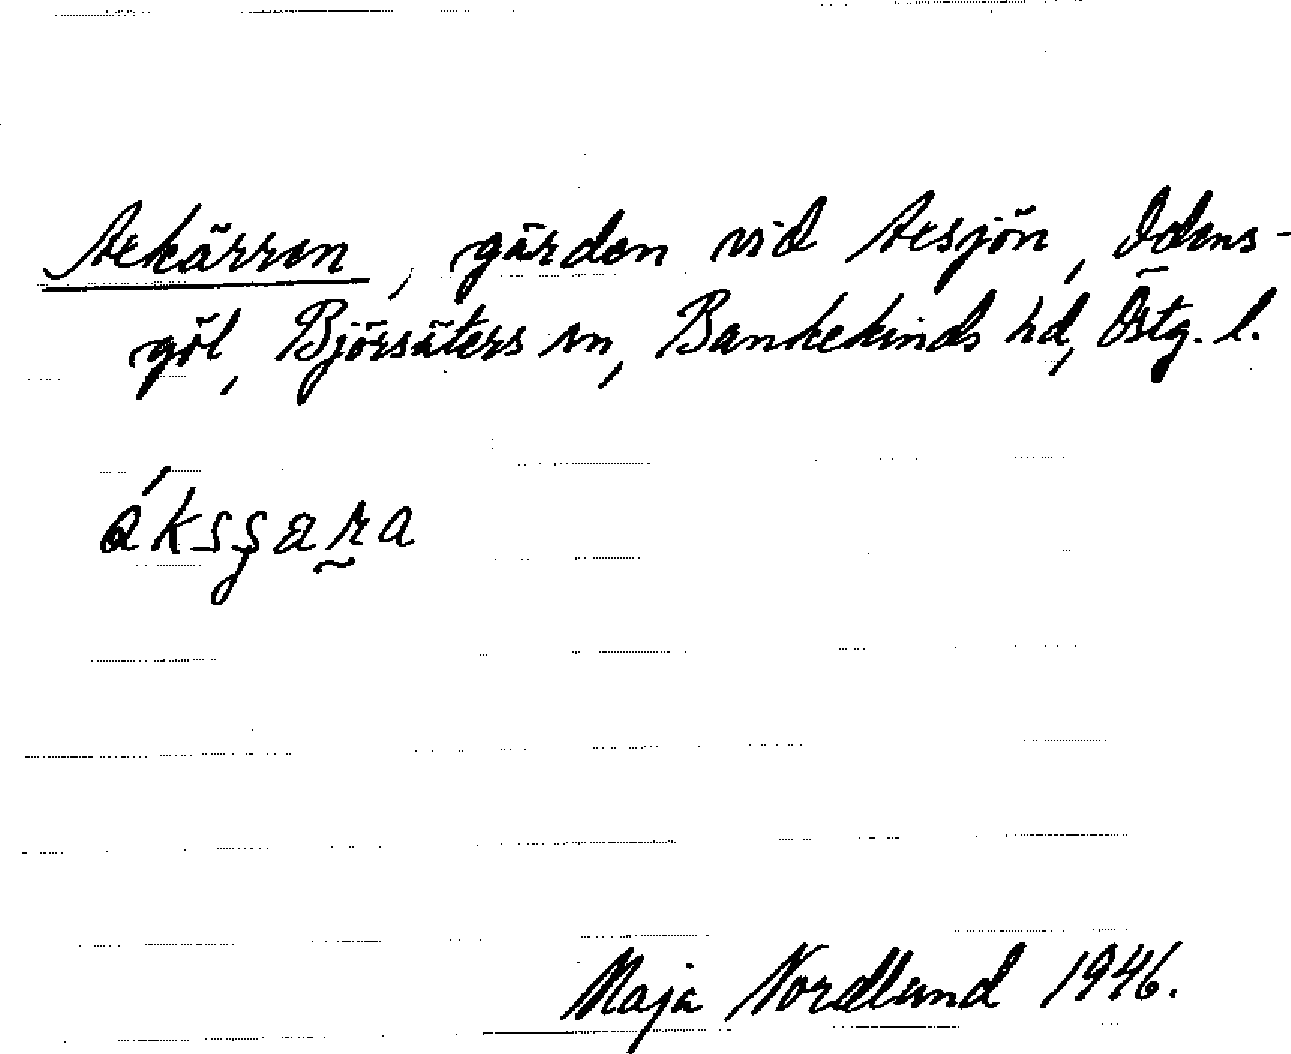 Askärren, gärden vid Assjön, Idens-
göl, Björsäters sn, Bankekinds hd, Östg. l.
Maja Nordlund 1946.